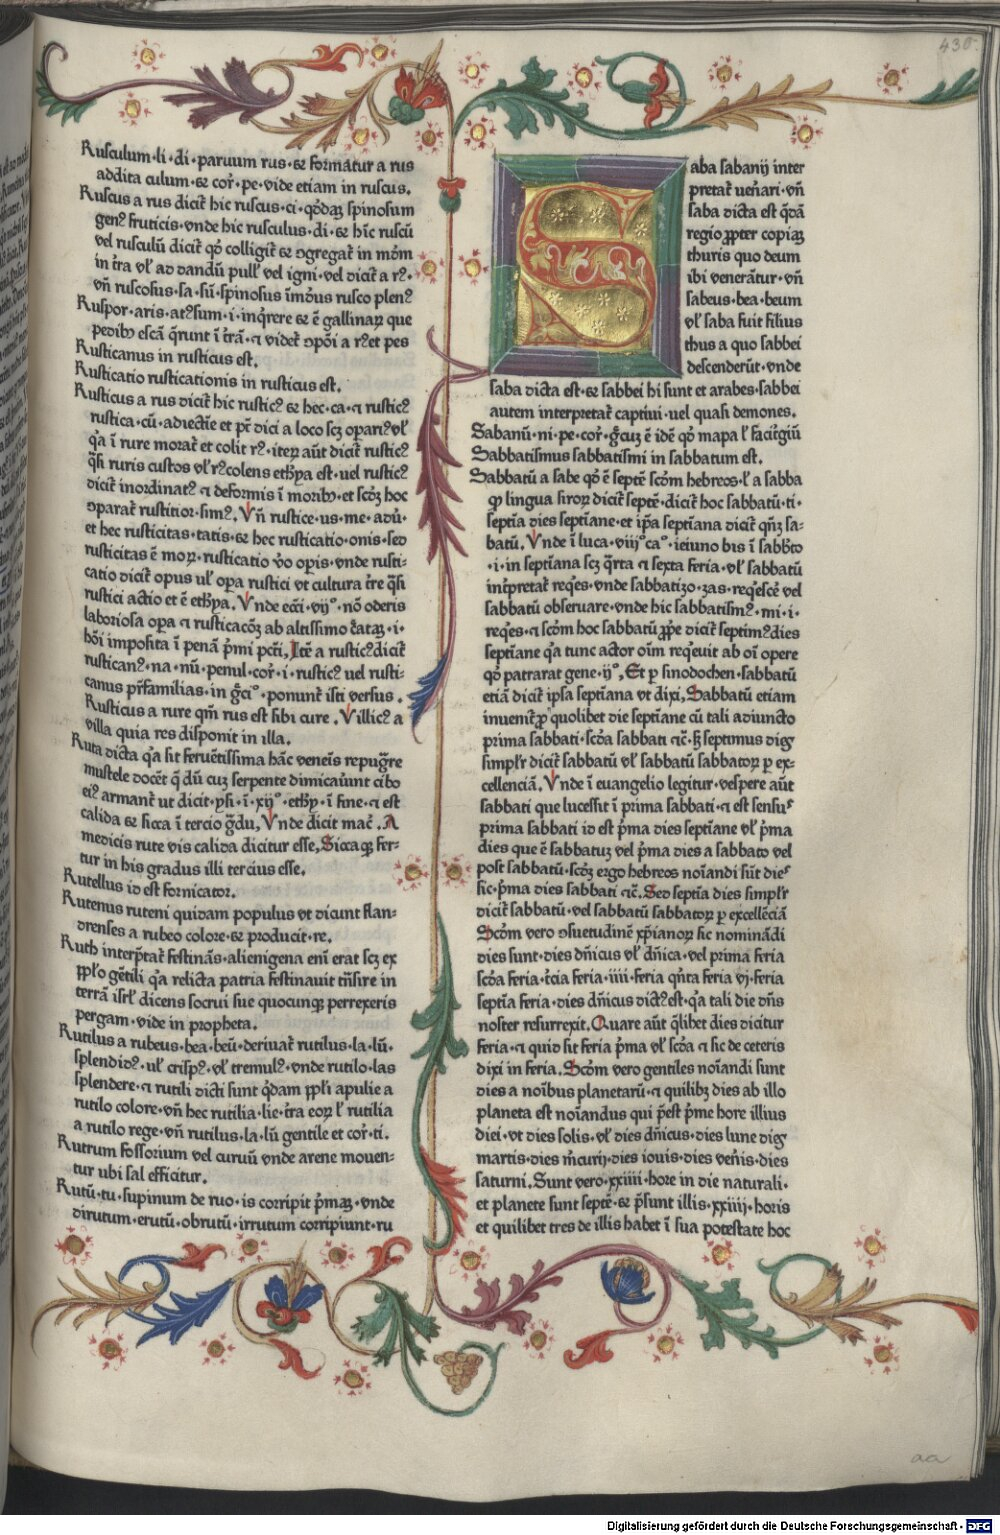 430.
Rusculum·li·di·paruum rus·et formatur a rus
addita culum·et cor̄·pe·vide etiam in ruscus.
Ruscus a rus dicit̄ hic ruscus·ci·qd̄dā spinosum
gen⁹ fruticis·vnde hic rusculus·di·et hic ruscū
vel rusculū dicit̄ qȯ colligit̄ et ꝯgregat̄ in mōm
in t̄ra vl̓ ad dandū pull̓ vel igni·vel dicit̄ a r⁹·
vn̄ ruscosus·sa·sū·spinosus īmōus rusco plen⁹
Ruspor·aris·at⁹sum·i·inq̄rere et ē gallinaꝝ que
pedibꝰ escā q̄runt ī t̄rā·⁊ videt̄ ꝯpōi a r⁹et pes
Rusticanus in rusticus est.
Rusticatio rusticationis in rusticus est.
Rusticus a rus dicit̄ hic rustic⁹ et hec·ca·⁊ rustic⁹
rustica·cū·adiectīe et pt̄ dici a loco scꝫ oꝑari⁹vl̓
qꝛ ī rure morat̄ et colit r⁹·iteꝝ aūt dicit̄ rustic⁹
q̄si ruris custos vl̓ r⁹colens ethȳa est·uel rustic⁹
dicit̄ inordinat⁹ ⁊ deformis ī moribꝰ·et scd̄ꝫ hoc
ꝯparat̄ rusticior·sim⁹. Vn̄ rustice·us·me·adū·
et hec rusticitas·tatis·et hec rusticatio·onis·sed
rusticitas ē moꝝ·rusticatio v̄o opis·vnde rusti-
catio dicit̄ opus ul̓ oꝑa rustici vt cultura t̄re q̄si
rustici actio et ē ethȳa. Vnde ecc̄i·vij°·nō oderis
laboriosa oꝑa ⁊ rusticacōꝫ ab altissimo c̄atā·i·
hōi imposita ī penā p̄mi pc̄ti, Itē a rustic⁹dicit̄
rustican⁹·na·nū·penul·cor̄·i·rustic⁹ uel rusti-
canus pr̄familias·in gc̄i°·ponunt̄ isti versus·
Rusticus a rure qm̄ rus est sibi cure. Villic⁹ a
villa quia res disponit in illa.
Ruta dicta qꝛ sit feruētissima hāc veneīs repug̓re
mustele docēt q̄ dū cuꝫ serpente dimicauunt cibo
ei⁹ armant̄ ut dicit·ysi·ī·xij°·ethȳ·ī fine·⁊ est
calida et sicca ī tercio g̓du, Vnde dicit mac̄. A
medicis rute vis calida dicitur esse, Siccaqꝫ fer-
tur in his gradus illi tercius esse.
Rutellus id est fornicator.
Rutenus ruteni quidam populus vt dicunt flan-
drenses a rubeo colore·et producit·te.
Ruth interp̄tat̄ festinās·alienigena eni̅ erat scꝫ ex
ppl̓o gētili qꝛ relicta patria festinauit trn̄sire in
terrā isrl̓ dicens socrui sue quocunqꝫ perrexeris
pergam·vide in propheta.
Rutilus a rubeus·bea·beū·deriuat̄ rutilus·la·lū·
splendid⁹·ul̓ crisp⁹·vl̓ tremul⁹·vnde rutilo·las
splendere·⁊ rutili dicti sunt q̄dam ppl̓i apulie a
rutilo colore·vn̄ hec rutilia·lie·t̄ra eoꝝ l̓ rutilia
a rutilo rege·vn̄ rutilus·la·lū gentile et cor̄·ti.
Rutrum fossorium vel curuū vnde arene mouen-
tur ubi sal efficitur.
Rutū·tu·supinum de ruo·is corripit p̄maꝫ·vnde
dirutum·erutū·obrutū·irrutum corripiunt·ru
Saba sabanij inter
pretat̄ ueñari·vn̄
saba dicta est q̄dā
regio ꝓpter copiaꝫ
thuris quo deum
ibi venerātur·vn̄
sabeus·bea·beum
vl̓ saba fuit filius
thus a quo sabbei
descenderūt·vnde
saba dicta est·et sabbei hi sunt et arabes·sabbei
autem interpretat̄ captiui·uel quasi demones.
Sabanū·ni·pe·cor̄·gc̄uꝫ ē idē qȯ mapa l̓ facit̄giū
Sabbatismus sabbatismi in sabbatum est.
Sabbatū a sabe qȯ ē septē scd̄m hebreos·l̓ a sabba
qꝫ lingua siroꝝ dicit̄ septē·dicit̄ hoc sabbatū·ti·
septīa dies septīane·et ip̄a septīana dicit̄ qn̄ꝫ sa-
batū. Vnde ī luca·viij°ca°·ieiuno bis ī sabb̄to
·i·in septīana scꝫ q̄rta ⁊ sexta feria·vl̓ sabbatū
int̄pretat̄ req̓es·vnde sabbatizo·zas·req̓esc̓e vel
sabbatū obseruare·vnde hic sabbatism⁹·mi·i·
req̓es·⁊ scd̄m hoc sabbatū ꝓp̄e dicit̄ septim⁹dies
septīane qꝛ tunc actor oīm req̓euit ab oī opere
qȯ patrarat gene·ij°, Et ꝑ sinodochen·sabbatū
etiā dicit̄ ipsa septīana vt dixi, Sabbatū etiam
inuenit̄ ꝓ quolibet die septīane cū tali adiuncto
prima sabbati·scd̄a sabbati ⁊c̄·sꝫ septimus dies
simpl̓r dicit̄ sabbatū vl̓ sabbatū sabbatoꝝ ꝑ ex-
cellenciā. Vnde ī euangelio legitur·vespere aūt
sabbati que lucessit ī prima sabbati·⁊ est sensuˢ
prima sabbati id est p̄ma dies septīane vl̓ p̄ma
dies que ē sabbatuꝫ vel p̄ma dies a sabbato vel
post sabbatū·scd̄ꝫ ergo hebreos noīandi sūt dieˢ
sic·p̄ma dies sabbati ⁊c̄. Sed septīa dies simpl̓r
dicit̄ sabbatū·vel sabbatū sabbatoꝝ ꝑ excellēciā
Scd̄m vero ꝯsuetudinē xp̄ianoꝝ sic nominādi
dies sunt·dies dn̄icus vl̓ dn̄ica·vel prima feria
scd̄a feria·t̄cia feria·iiii·feria qn̄ta feria vj·feria
septīa feria·dies dn̄icus dict⁹est·qꝛ tali die dn̄s
noster resurrexit. Quare aūt q̓libet dies dicitur
feria·⁊ quid sit feria p̄ma vl̓ scd̄a ⁊ sic de ceteris
dixi in feria. Scd̄m vero gentiles noīandi sunt
dies a noībus planetarū·⁊ quilibꝫ dies ab illo
planeta est noīandus qui p̄est p̄me hore illius
diei·vt dies solis·vl̓ dies dn̄icus·dies lune dies
martis·dies m̄curij·dies iouis·dies ven̄is·dies
saturni. Sunt vero·xxiiii·hore in die naturali·
et planete sunt septē·et p̄sunt illis·xxiiij·horis
et quilibet tres de illis habet ī sua potestate hoc
aa
Digitalisierung gefördert durch die Deutsche Forschungsgemeinschaft - DFG